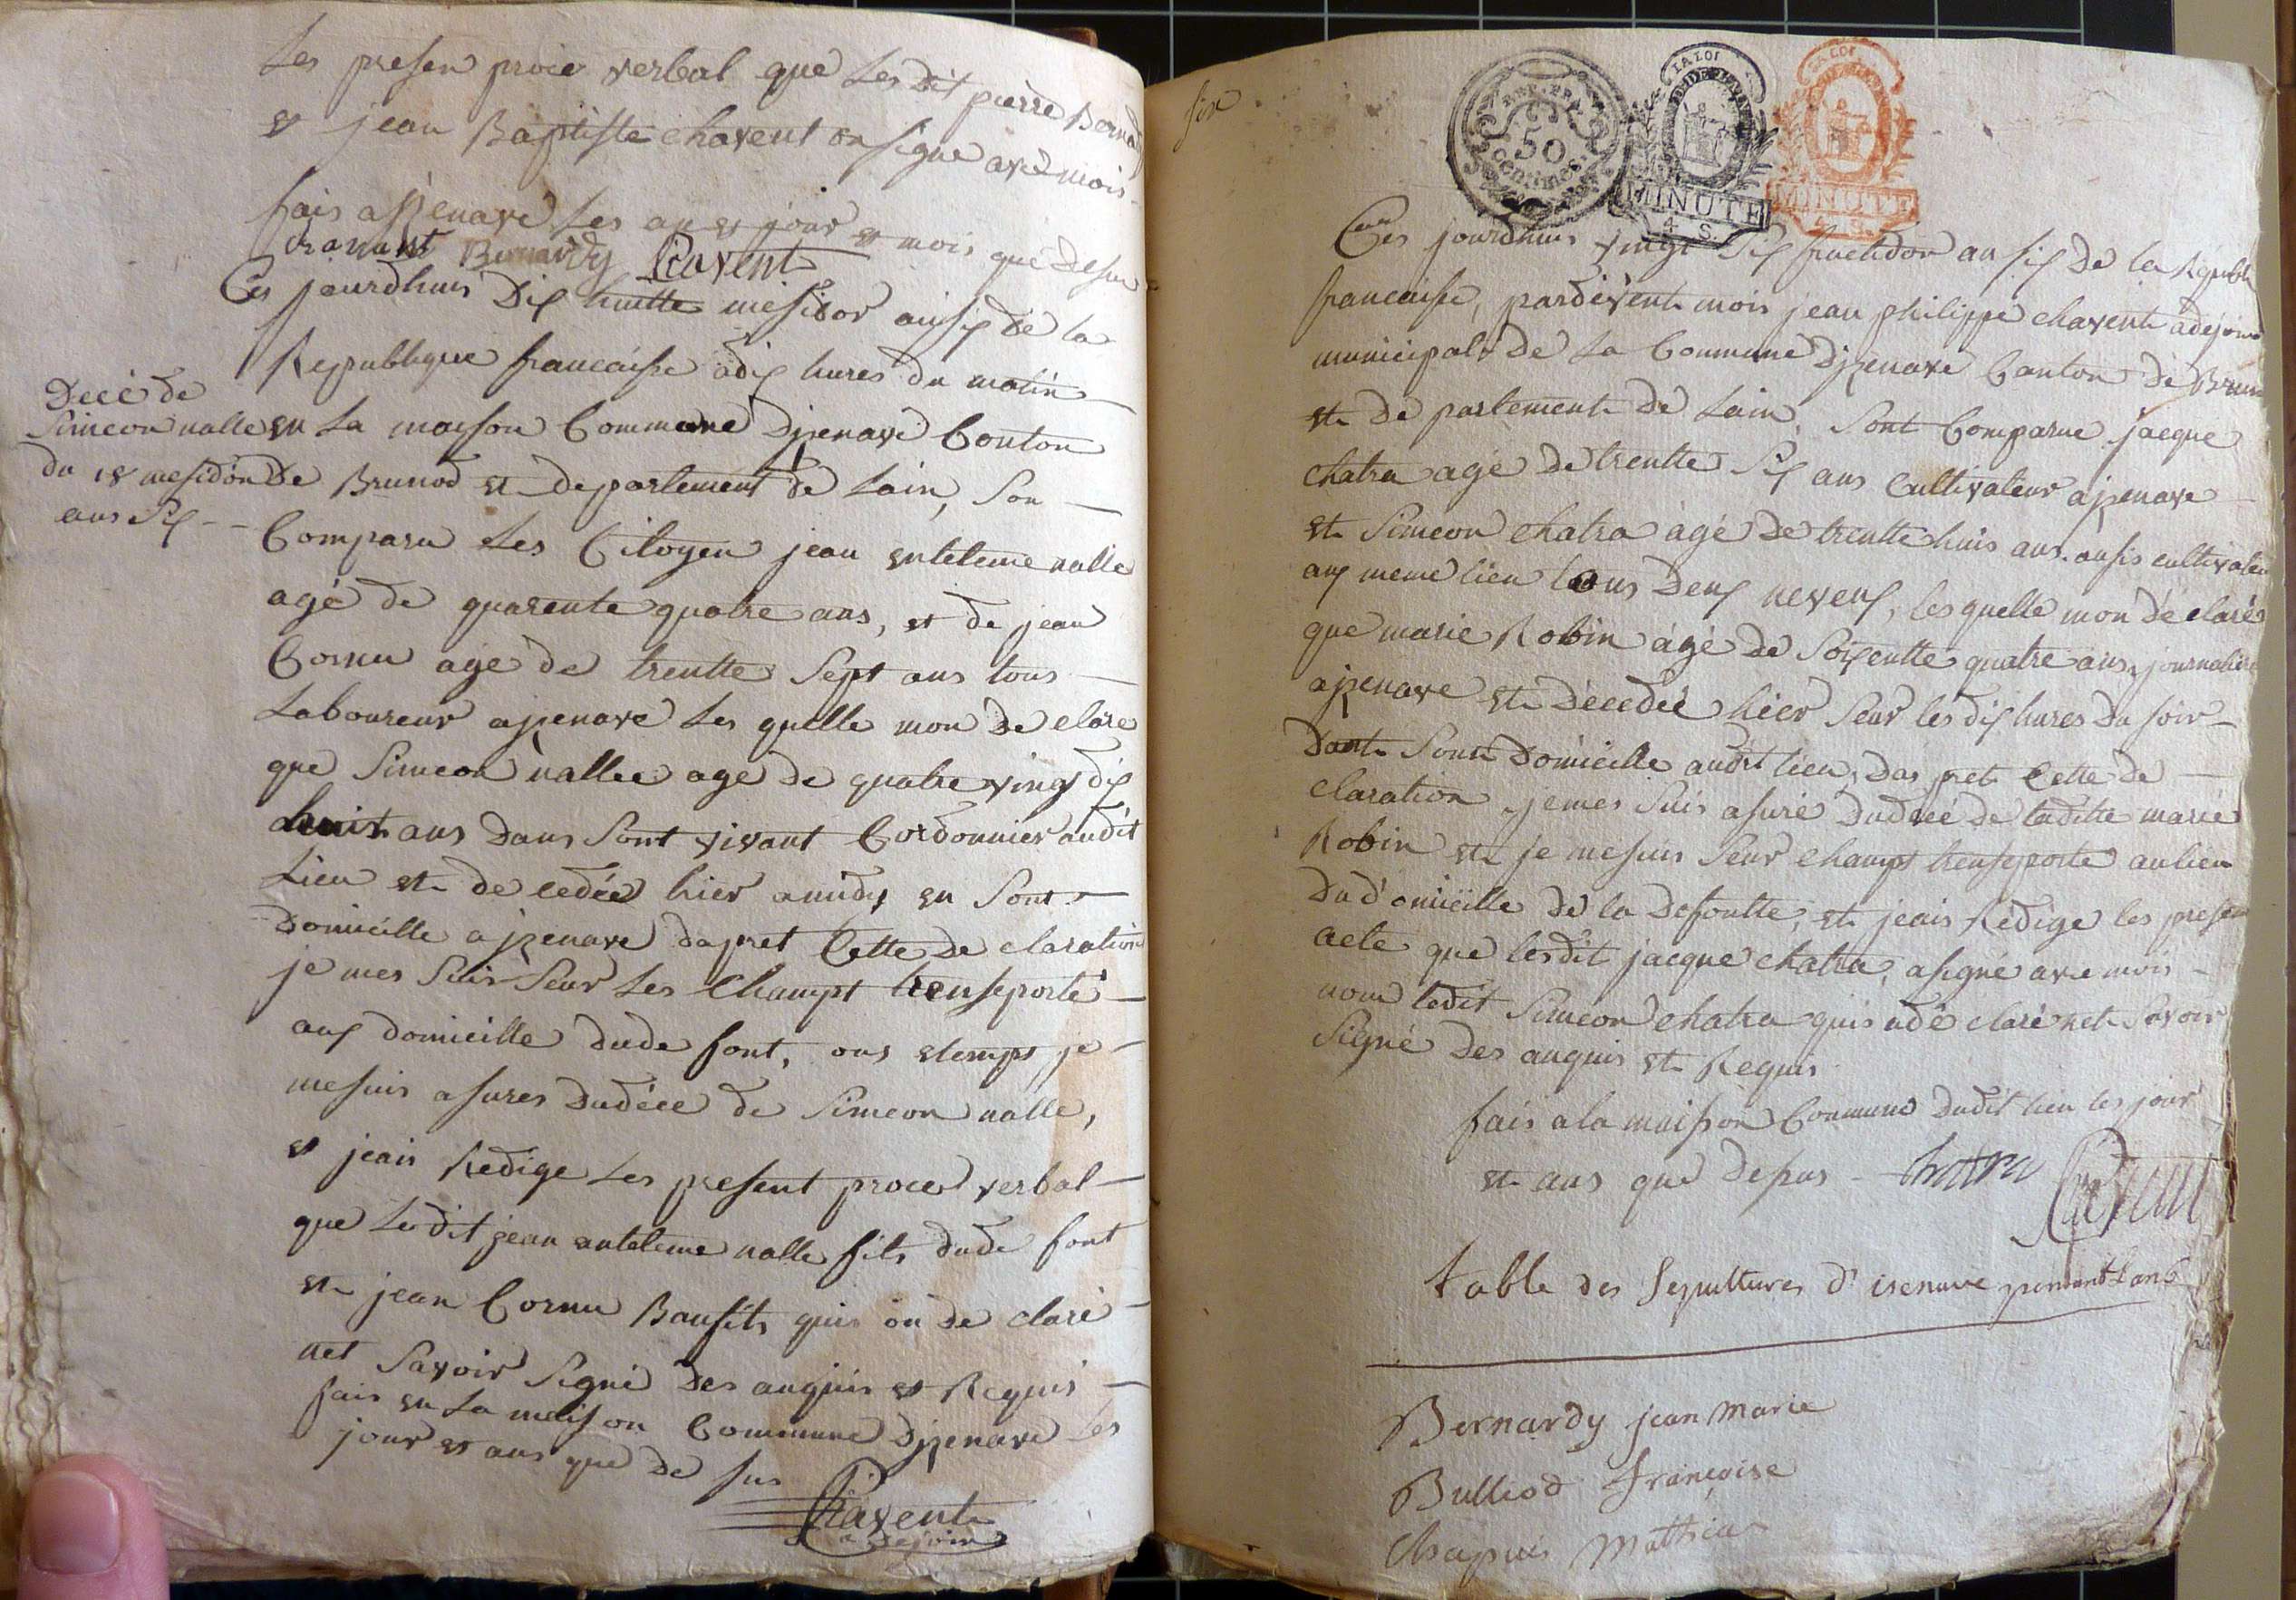 Les presen proce verbal que Les Dit pierre Bernady
et jean Baptiste chavent on signe avec mois
fais apzenave les an et jour et mois que desu
chavant Bernardy Chavent
Ces jourdhuis Dix huitte messidor ansix de la
Republique francaisse adix hures du matin
en La maison Commune Dizenave Canton
de Brunod et departement de Lain, Son
Comparu Les Citoyen jean enteleme nalle
agé de quarente quatre ans, et de jean
Cornu age de trentte Sept ans tous
Laboureur apzenave Les quelle mon De clare
que Simeon nallee age de quatre ving dix
huit ans Dans Sont vivant Cordonnier audit
Lieu et de cedée hier amidy en Sont
Domicille apzenave dapret Cette De claration
je mes Suis Seur Les Champt trensporté
aux domicille dude font, ous etemps je
mesuis asures Dudéce de Simeon nalle,
et jeais Redige Les present proce verbal
que Ledit jean anteleme nalle fils dude font
et jean Cornu Baufils quis on De claré
net Savoir Signé Des anquis et Requis
fais en La maison Commune Dizenave Les
jour et ans que de sus
Chavent
adejoin
Decé de
Simeon nalle
du 18 mesidor
ans Six
six
REP. FRA.
50
centimes.
LA LOI
MINUTE
4 S.
LA LOI
MINUTE
4 S.
Ces jourdhuis vingt Six fructidor an six De la Republi
francaisse, pardevent mois jean philippe chavent adejoin
municipal de La Commune Dizenave Canton de Brun
et De partement De Lain, Sont Comparue jacque
chatra age De trentte Six ans Cultivateur apzenave
et Simeon chatra agé De trentte huis ans ausis cultivateu
aux meme lieu tous Deux neveux, lesquelle mon déclaré
que marie Robin agé de Soixentte quatre ans journalie
apzenave et décedée hier Seur les dix hures Du soir
Dant Sont Domicille audit lieu, Dapret Cette de
claration jemes Suis asuré Dudecé de ladite marie
Robin et je mesuis Seur champt trensporté aulieu
Dud'omicille de la Defontte, et jeais Redige les presen
acte que lesdit jacque chatra asigné ave mois
nom ledit Simeon chatra quis adé claré net Savoir
Signé Des anquis et Requis
fais a la maison Commune Dudit lieu les jour
et ans que depus chatra Chavent
table des Sepultures d'isenave pendant Lan 6
Bernardy jean marie
Bulliod françoise
Chapuis Mathieu